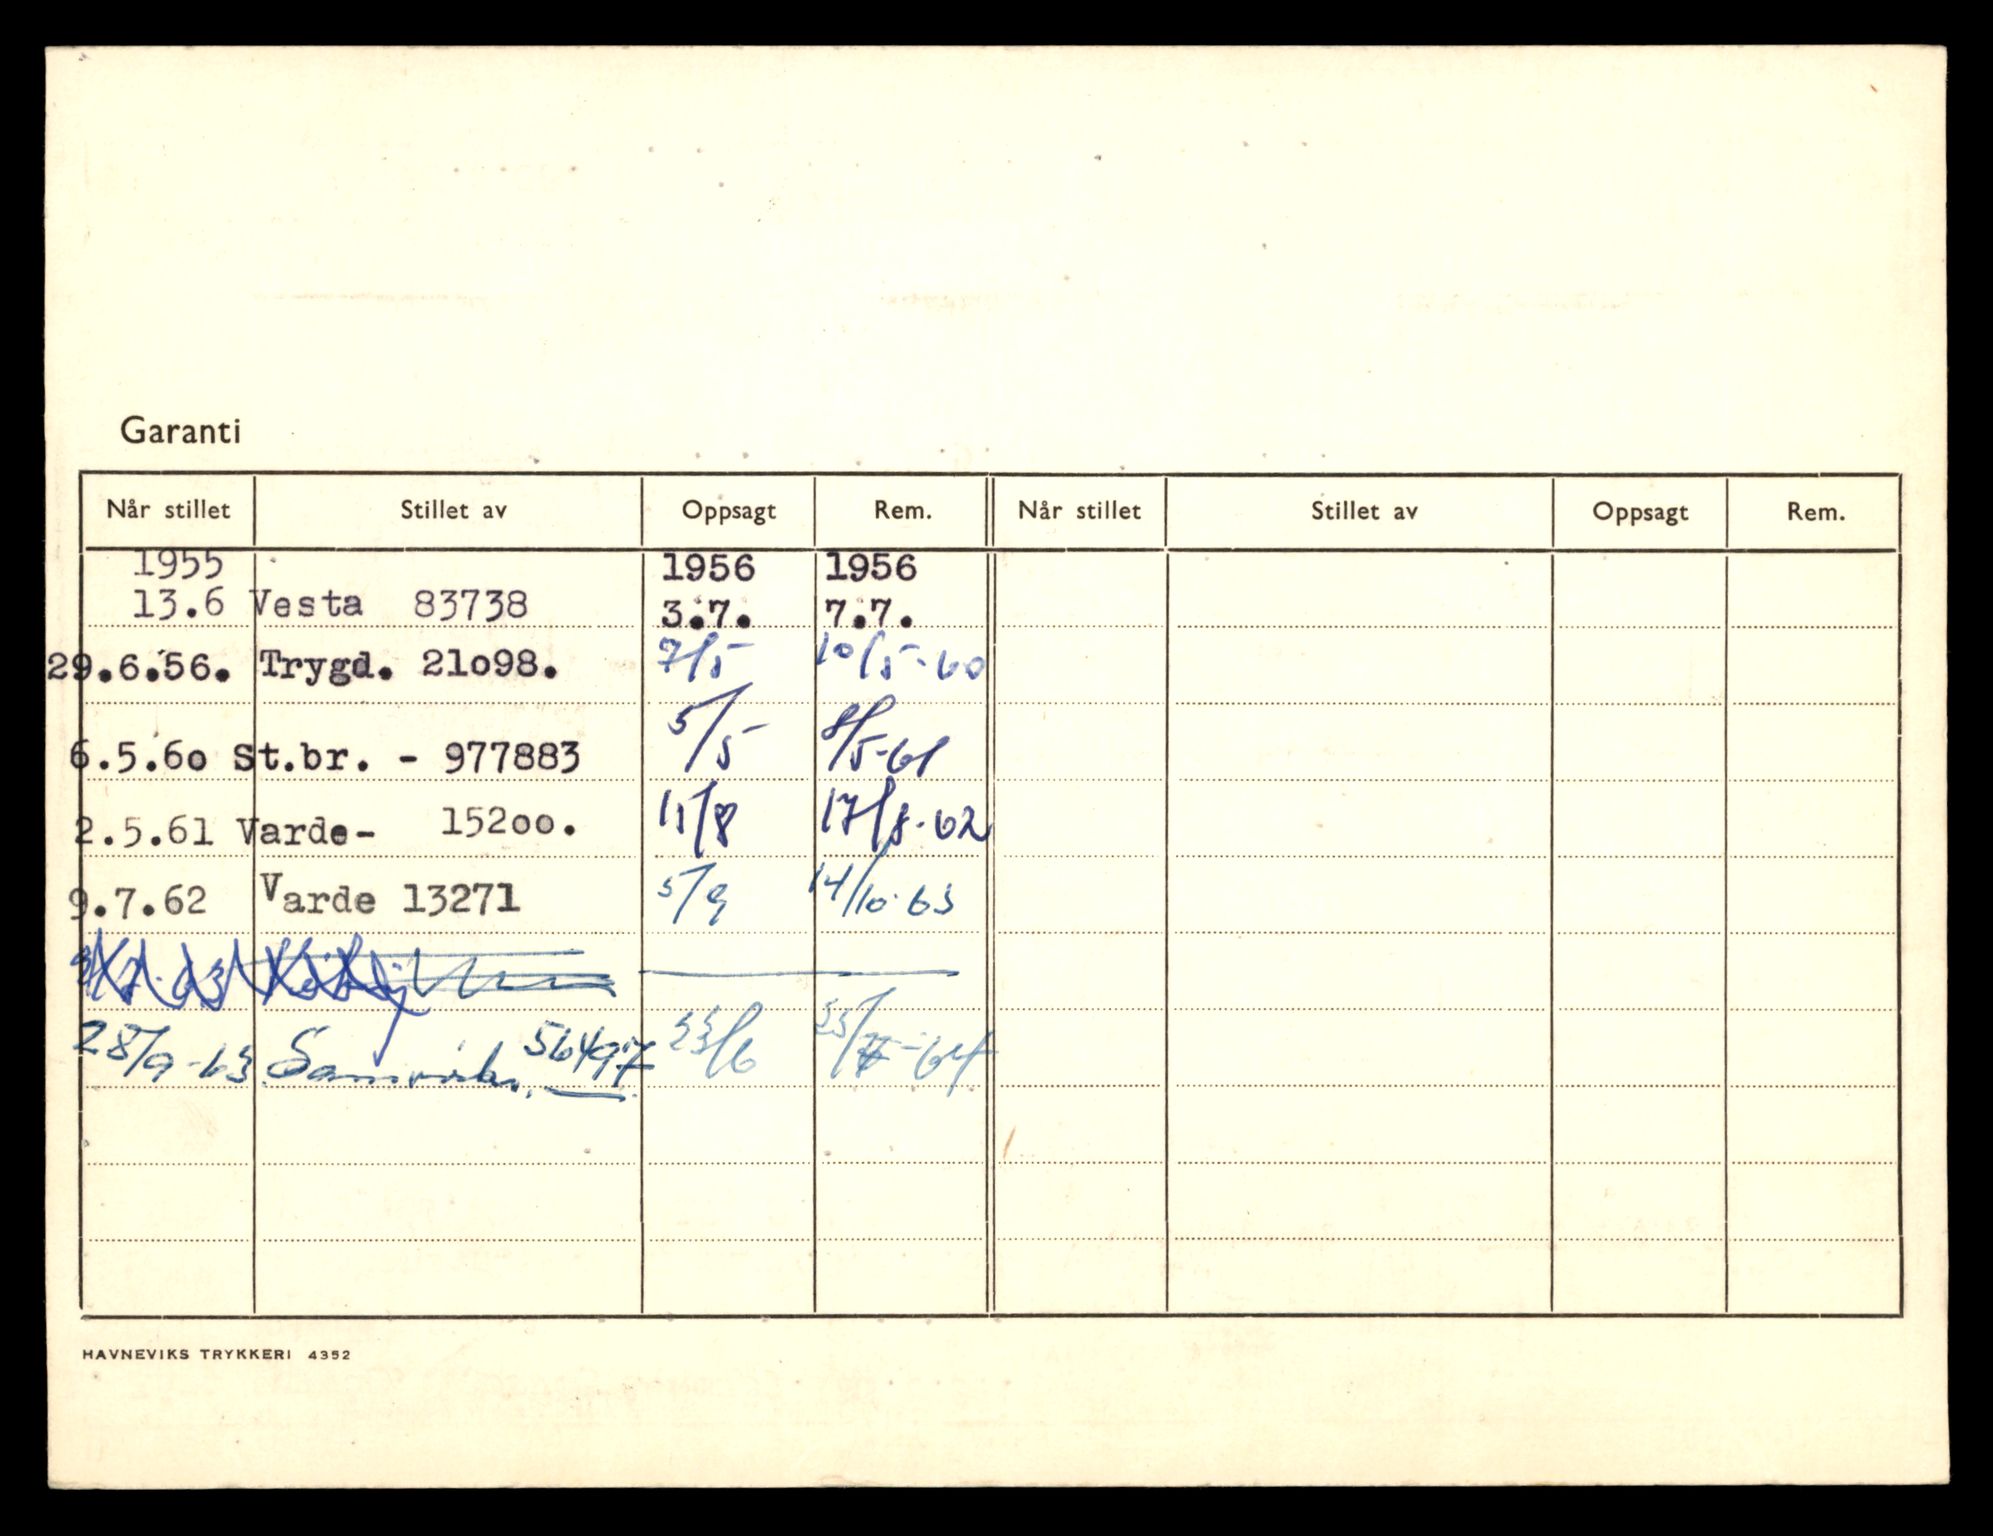 Garanti
Når stillet Stillet av Oppsagt Rem. Når stillet Stillet av Oppsagt Rem.
1955 1956 1956
13.6 Vesta 83738 3.7. 7.7.
29.6.56. Trygd. 21o98. 7/5 10/5-60
6.5.6o St.br. - 977883 5/5 8/5-61
2.5.61 Varde- 152oo. 11/8 17/8-62
9.7.62 Varde 13271 5/9 14/10-63
28/9-63 Samvirke. 56497 23/6 /7-64
HAVNEVIKS TRYKKERI 4352